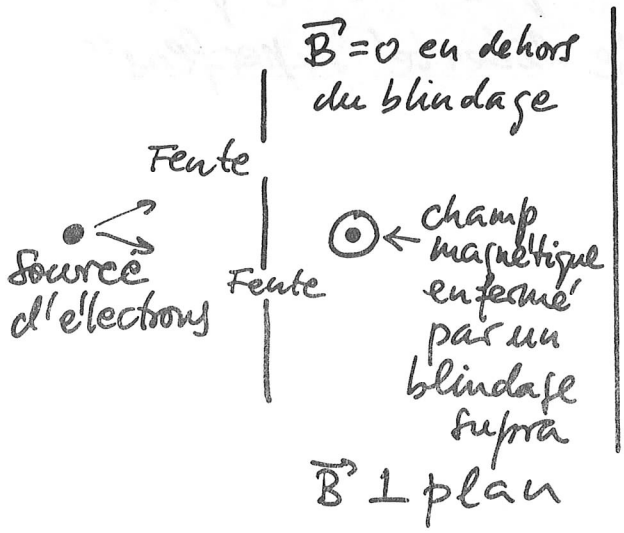 B⃗=0 en dehors
du blindage
Fente
Source
d'électrons
Fente
champ
magnétique
enfermé
par un
blindage
supra
B⃗ ⊥ plan